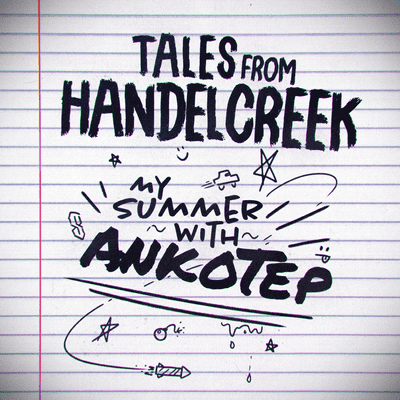 TALES FROM
HANDELCREEK
MY
SUMMER
~ WITH ~
ANKOTEP